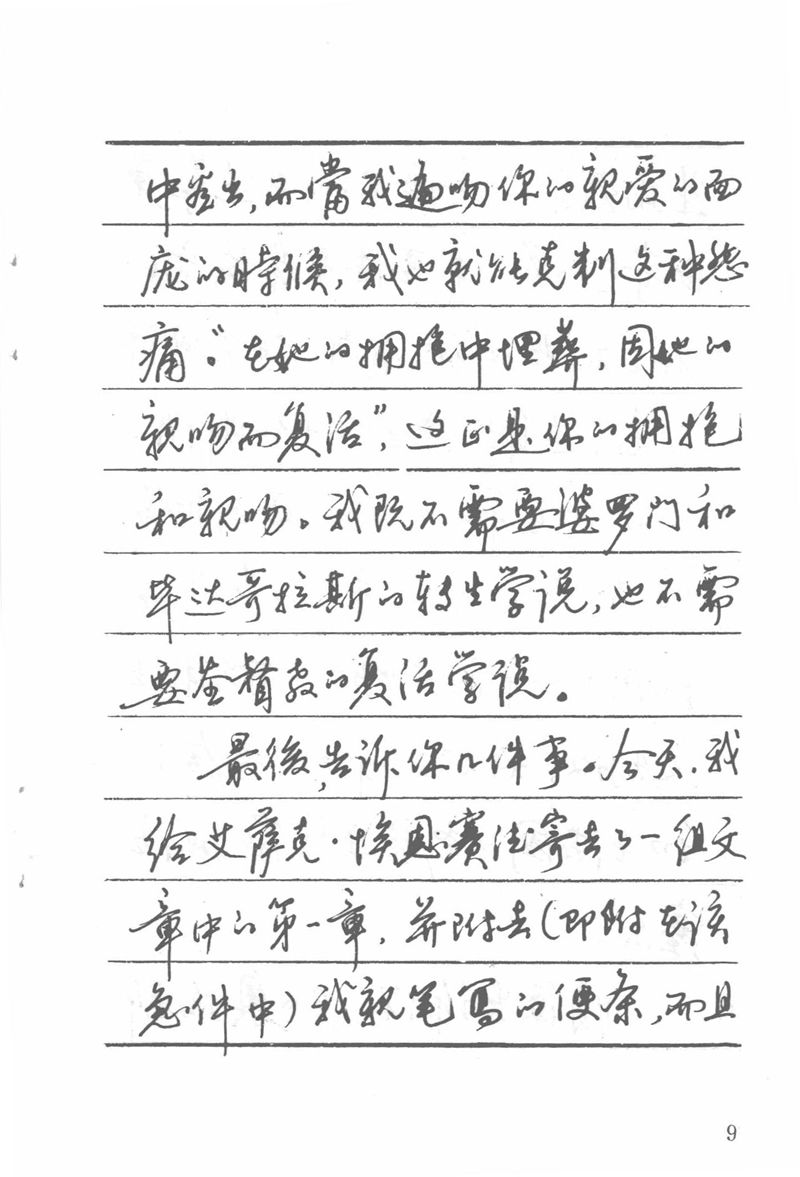 中登出，而當我遍吻你的親爱的面
庞的時候，我也就能克制这种悲
痛。“在她的拥抱中埋葬，因她的
親吻而复活”，这正是你的拥抱
和親吻。我既不需要婆罗门和
毕达哥拉斯的转生学说，也不需
要基督教的复活学说。
最後，告诉你几件事。今天，我
给艾萨克·埃恩赛德寄去了一组文
章中的第一章，并附去（即附在该
急件中）我親笔写的便条，而且
9